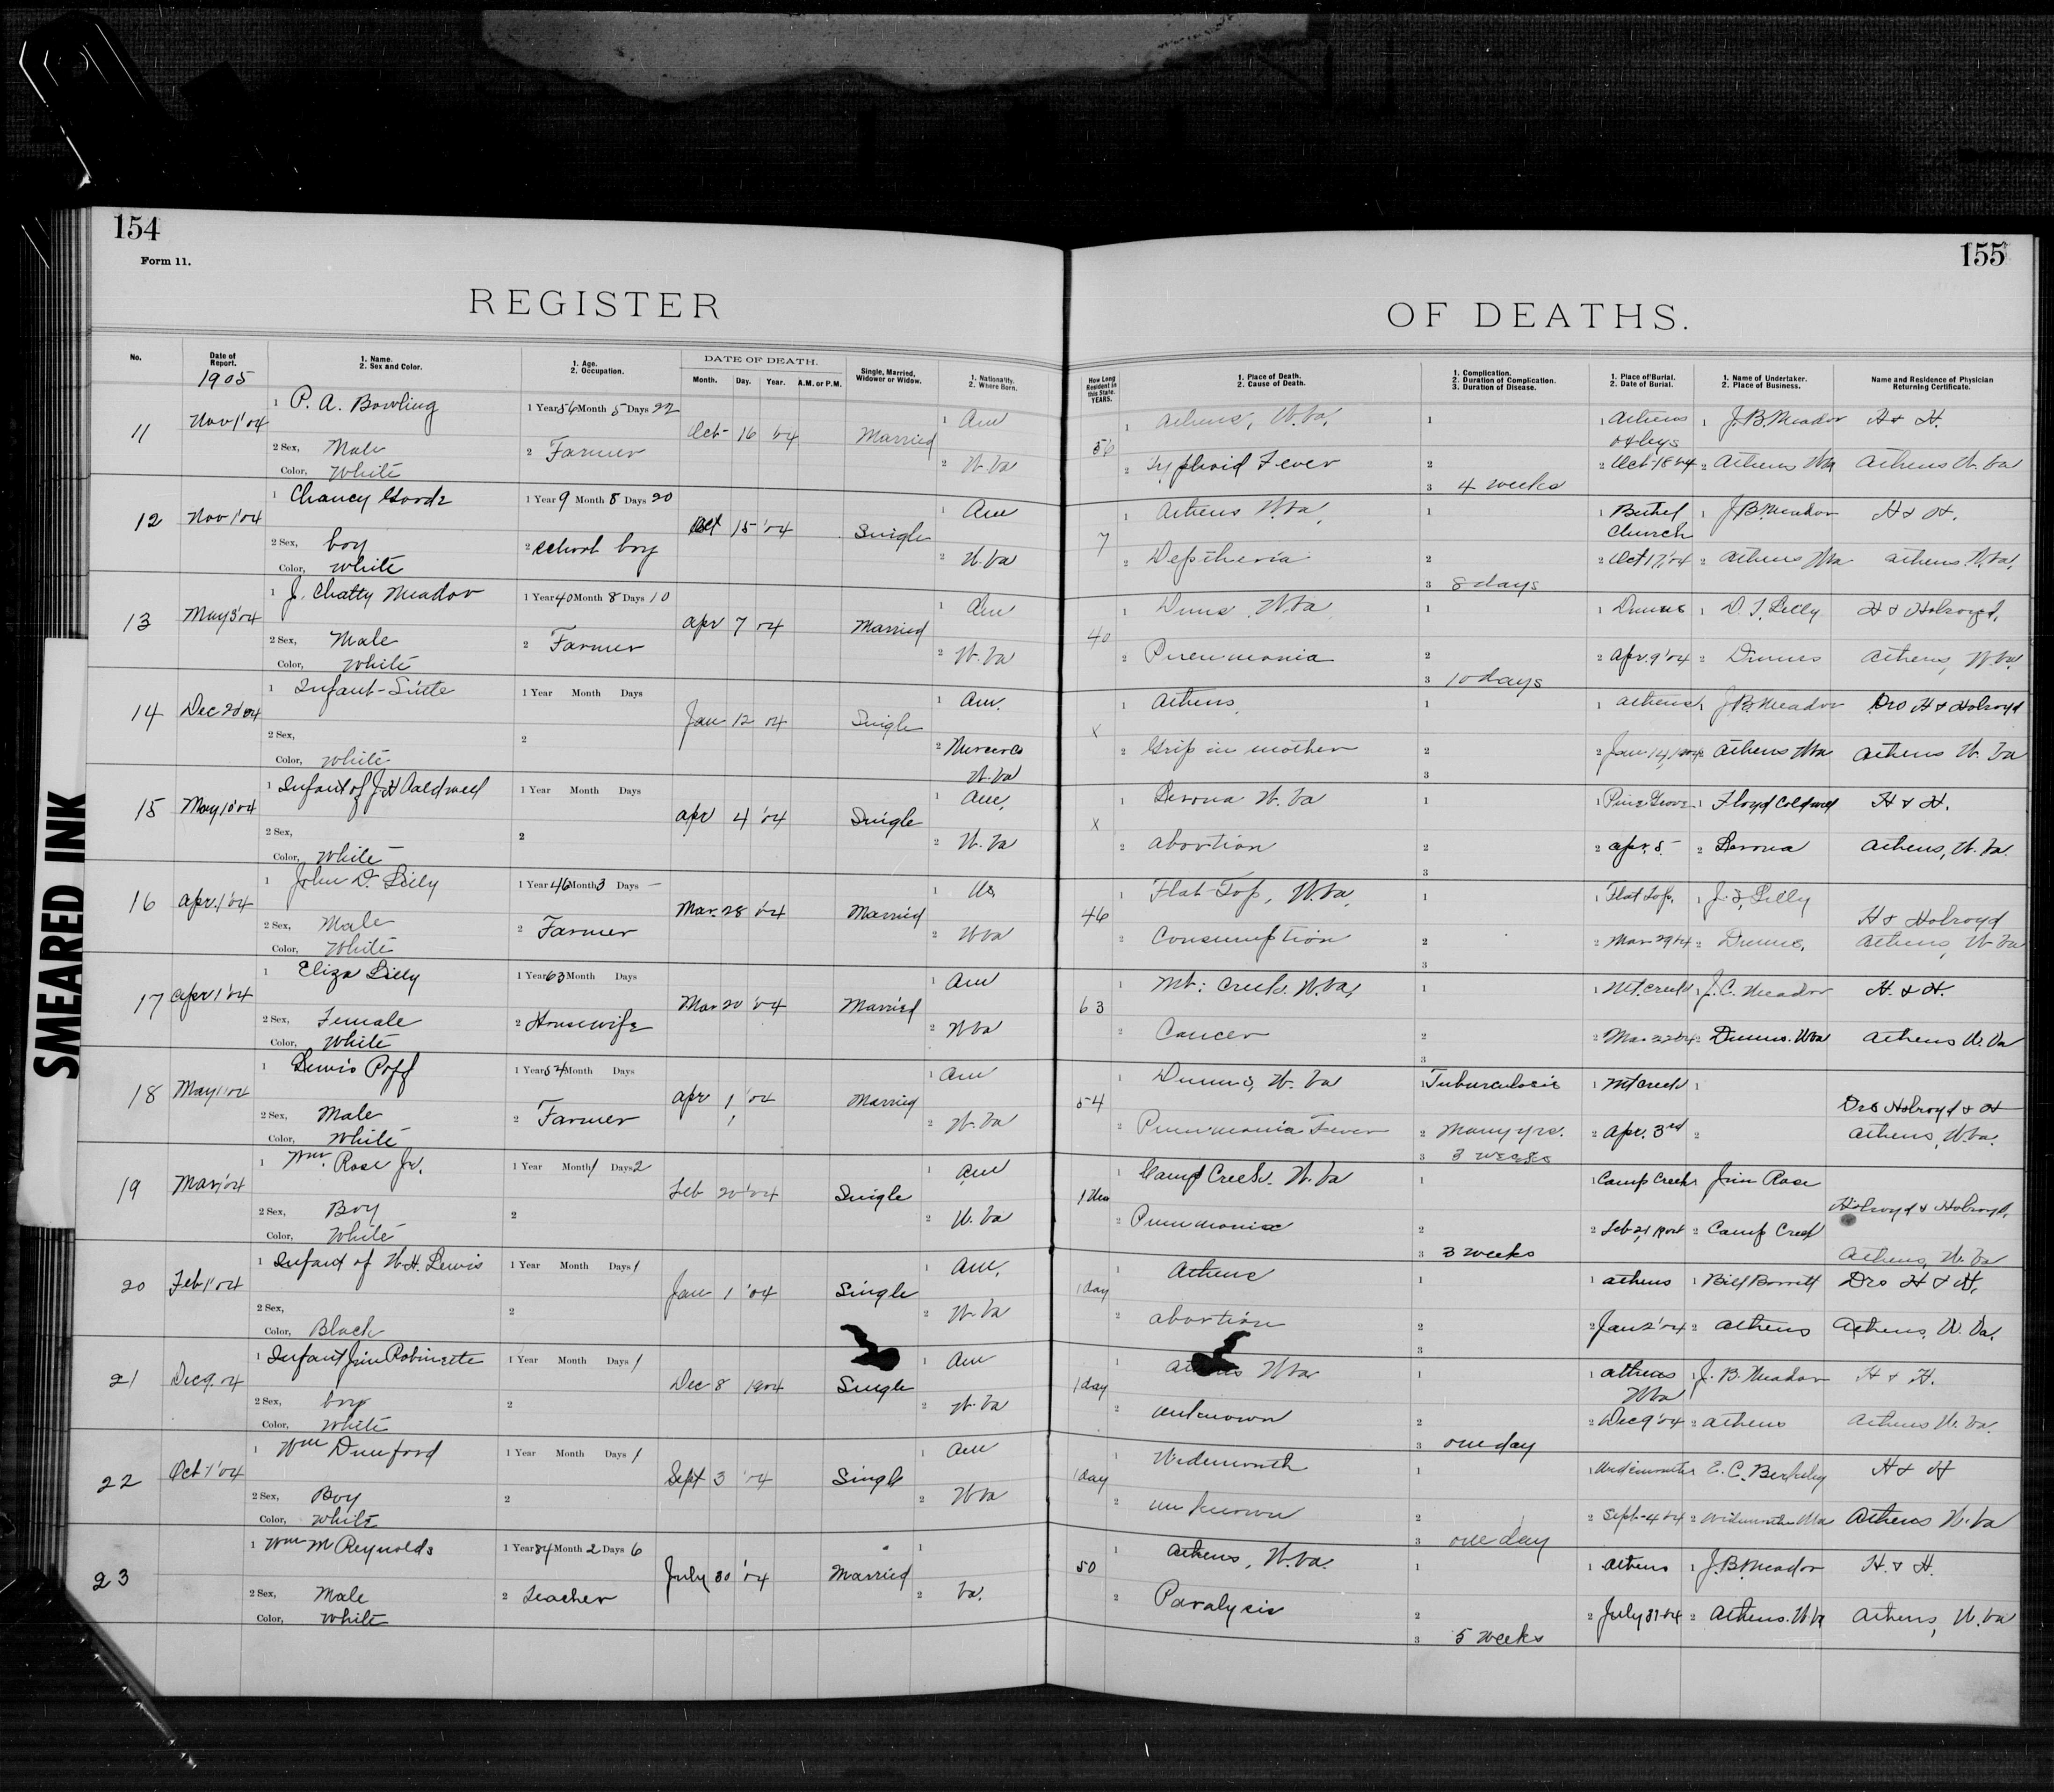 154
Form 11.
REGISTER
No.
Date of Report.
1905
1. Name.
2. Sex and Color.
1. Age.
2. Occupation.
DATE OF DEATH.
Month. Day. Year. A.M. or P.M.
Single, Married, Widower or Widow.
1. Nationality.
2. Where Born.
11 Nov 1 '04
1 P. A. Bowling
2 Sex, Male
Color, White
1 Year 56 Month 5 Days 22
2 Farmer
Oct 16 '04 Married
1 Am
2 W. Va
12 Nov 1 '04
1 Chancy
2 Sex, boy
Color, White
1 Year 9 Month 8 Days 20
2 school boy
Oct 15 '04 Single
1 Am
2 W. Va
13 May 3 '04
1 J. Chatty Meador
2 Sex, Male
Color, White
1 Year 40 Month 8 Days 10
2 Farmer
Apr 7 04 Married
1 Am
2 W. Va
14 Dec 20 04
1 Infant
2 Sex,
Color, White
1 Year Month Days
2
Jan 12 04 Single
1 Am.
2 Mercer Co
W. Va
15 May 10 '04
1 Infant of J H Caldwell
2 Sex,
Color, White
1 Year Month Days
2
Apr 4 '04 Single
1 Am.
2 W. Va
16 Apr. 1 '04
1 John D. Lilly
2 Sex, Male
Color, White
1 Year 46 Month 3 Days –
2 Farmer
Mar. 28 '04 Married
1 Us
2 W Va
17 Apr 1 '04
1 Eliza Lilly
2 Sex, Female
Color, White
1 Year 63 Month Days
2 Housewife
Mar 20 '04 Married
1 Am
2 W Va
18 May 1 '04
1 Lewis Poff
2 Sex, Male
Color, White
1 Year 54 Month Days
2 Farmer
Apr 1 '04 Married
1 Am
2 W. Va
19 Mar 1 '04
1 Wm. Rose Jr.
2 Sex, Boy
Color, White
1 Year Month 1 Days 2
2
Feb 20 '04 Single
1 Am
2 W. Va
20 Feb 1 '04
1 Infant of W. H. Lewis
2 Sex,
Color, Black
1 Year Month Days 1
2
Jan 1 '04 Single
1 Am.
2 W. Va
21 Dec 9. 04
1 Infant Jim Robinette
2 Sex, boy
Color, White
1 Year Month Days 1
2
Dec 8 1904 Single
1 Am
2 W. Va
22 Oct 1 '04
1 Wm Dunford
2 Sex, Boy
Color, White
1 Year Month Days 1
2
Sept 3 '04 Single
1 Am
2 W Va
23
1 Wm M Reynolds
2 Sex, Male
Color, White
1 Year 84 Month 2 Days 6
2 Teacher
July 30 '04 Married
1
2 Va.
SMEARED INK
155
OF DEATHS.
How Long Resident in this State. YEARS.
1. Place of Death.
2. Cause of Death.
1. Complication.
2. Duration of Complication.
3. Duration of Disease.
1. Place of Burial.
2. Date of Burial.
1. Name of Undertaker.
2. Place of Business.
Name and Residence of Physician Returning Certificate.
56
1 Athens, W. Va.
2 Typhoid Fever
1
2
3 4 weeks
1 Athens
Oxleys
2 Oct 18 '04
1 J. B. Meador
2 Athens W Va
H & H.
Athens W. Va
7
1 Athens W. Va,
2 Deptheria
1
2
3 8 days
1 Bethel
Church
2 Oct 17, '04
1 J B Meador
2 Athens W Va
H & H.
Athens. W. Va.
40
1 Dunns, W Va
2 Pneumonia
1
2
3 10 days
1 Dunns
2 Apr. 9 '04
1 D. T. Lilly
2 Dunns
H & Holroyd,
Athens, W. Va.
X
1 Athens,
2 Grip in mother
1
2
3
1 Athens
2 Jan 14, 1904
1 J B Meador
2 Athens W Va
Drs H & Holroyd
Athens W. Va
X
1 Lerona W. Va
2 abortion
1
2
3
1 Pine Grove
2 Apr. 5.
1 Floyd Coldwell
2 Lerona
H & H.
Athens, W. Va.
46
1 Flat Top, W. Va.
2 Consumption
1
2
3
1 Flat Top.
2 Mar 29 04
1 J. F. Lilly
2 Dunns,
H & Holroyd
Athens, W. Va
63
1 Mt: Creek. W. Va,
2 Cancer
1
2
3
1 Mt. Creek
2 Mar 22 04
1 J. C. Meador
2 Dunns. W Va
H. & H.
Athens W. Va
54
1 Dunns, W. Va
2 Pneumonia Fever
1 Tuburculosis
2 Many yrs.
3 3 weeks
1 Mt Creek
2 Apr. 3rd
1
2
Drs Holroyd & H
Athens, W Va.
1 Mo
1 Camp Creek. W. Va
2 Pneumonia
1
2
3 3 weeks
1 Camp Creek
2 Feb 21, 1904
1 Jim Rose
2 Camp Creek
Holroyd & Holroyd,
Athens, W. Va
1 day
1 Athens
2 abortion
1
2
3
1 Athens
2 Jan 2 '04
1 Bill Barrett
2 Athens
Drs H & H.
Athens, W. Va.
1 day
1 Athens W Va
2 unknown
1
2
3 one day
1 Athens
W Va
2 Dec 9 '04
1 J. B. Meador
2 Athens
H & H.
Athens W. Va.
1 day
1 Widemouth
2 unknown
1
2
3 one day
1 Widemouth
2 Sept. 4 04
1 E. C. Berkeley
2 Widemouth W Va
H & H
Athens W. Va
50
1 Athens, W. Va.
2 Paralysis
1
2
3 5 weeks
1 Athens
2 July 31 04
1 J. B. Meador
2 Athens. W Va
H. & H.
Athens, W. Va